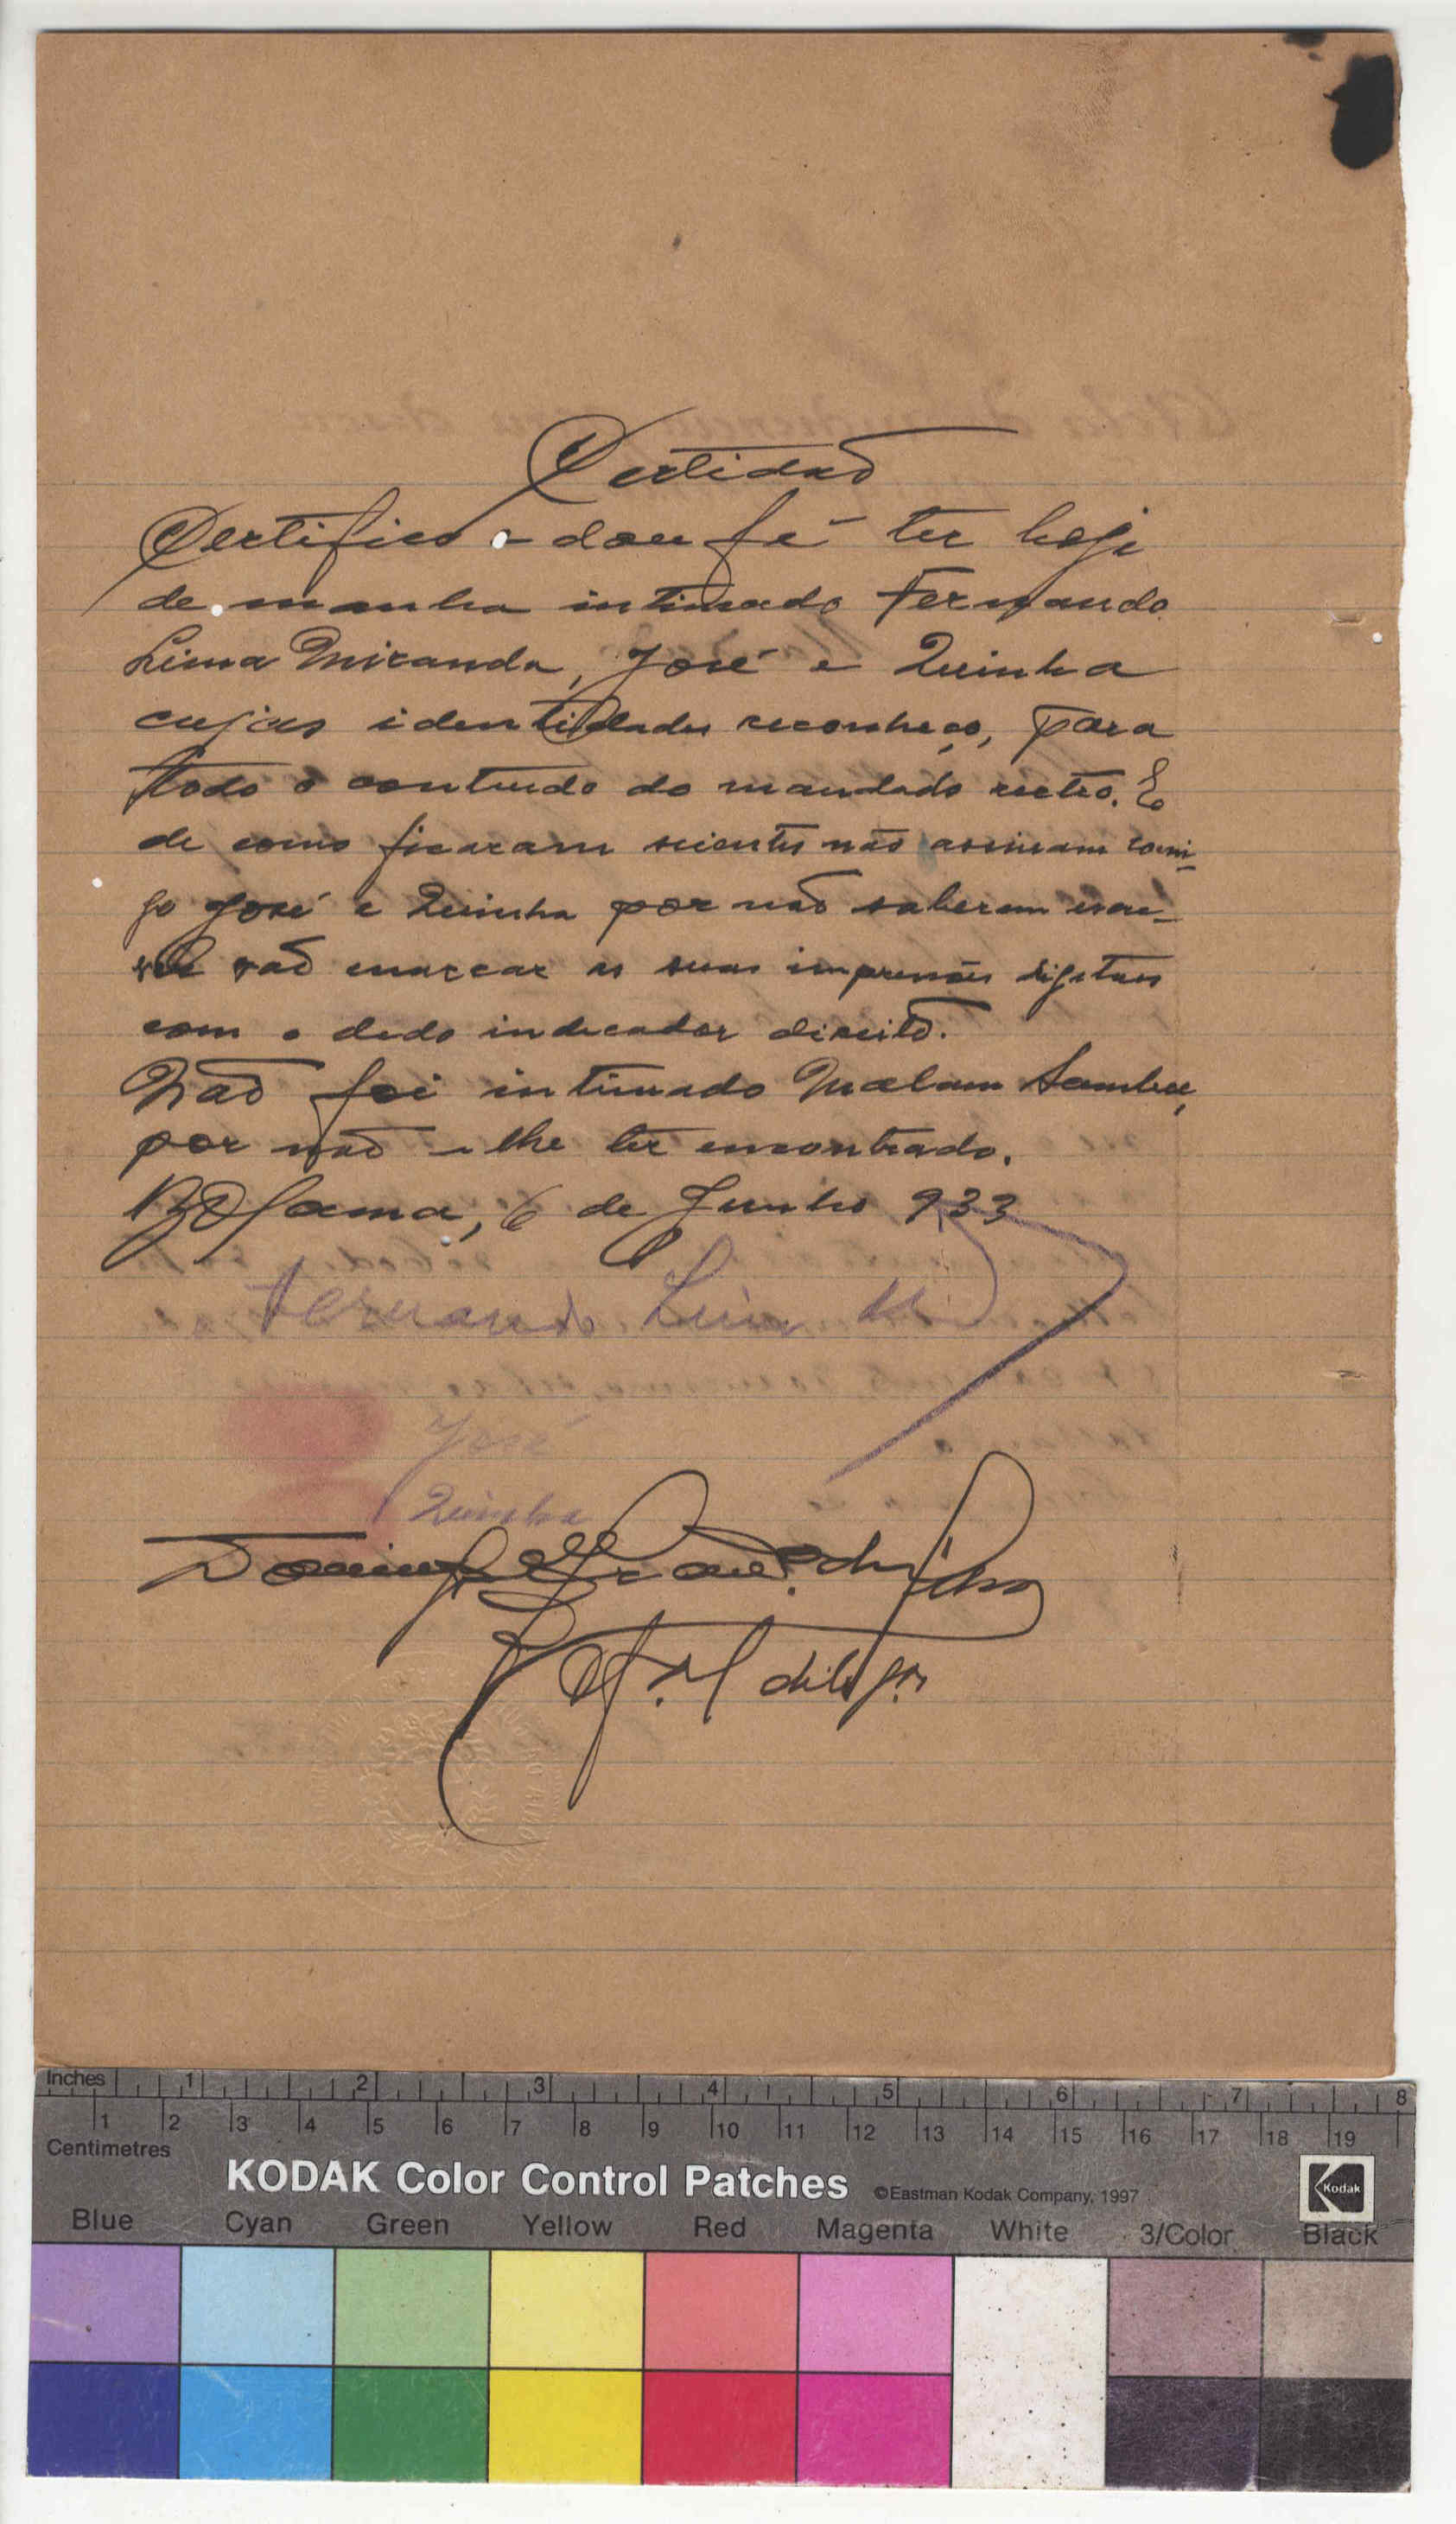 Certidão
Certifico e dou fé ter hoje
de manha intimado Fernando
Lima Miranda, José e Quinha
cujas identidades reconheço, para
todo o contendo do mandado rectro. E
de como ficaram scientes não assinam comi-
go José e Quinha por não saberem escre-
ver vão marcar as suas impressões digitaes
com o dedo indecador direito.
Não foi intimado Malam Sambu,
por não e lhe ter encontrado.
Bolama, 6 de Junho 933
Fernando Lima M
José
Quinha
Domingos
Of. dilig.
Inches 1 2 3 4 5 6 7 8
1 2 3 4 5 6 7 8 9 10 11 12 13 14 15 16 17 18 19
Centimetres
KODAK Color Control Patches ©Eastman Kodak Company, 1997 Kodak
Blue Cyan Green Yellow Red Magenta White 3/Color Black